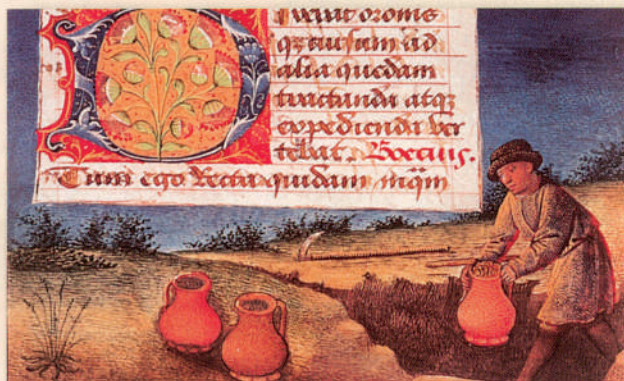 Dixerat oronis
qꝫ cursum ad
alia quedam
tractanda atqꝫ
expedienda ver
tebat. Boecius.
Tum ego Recta quidam inqm